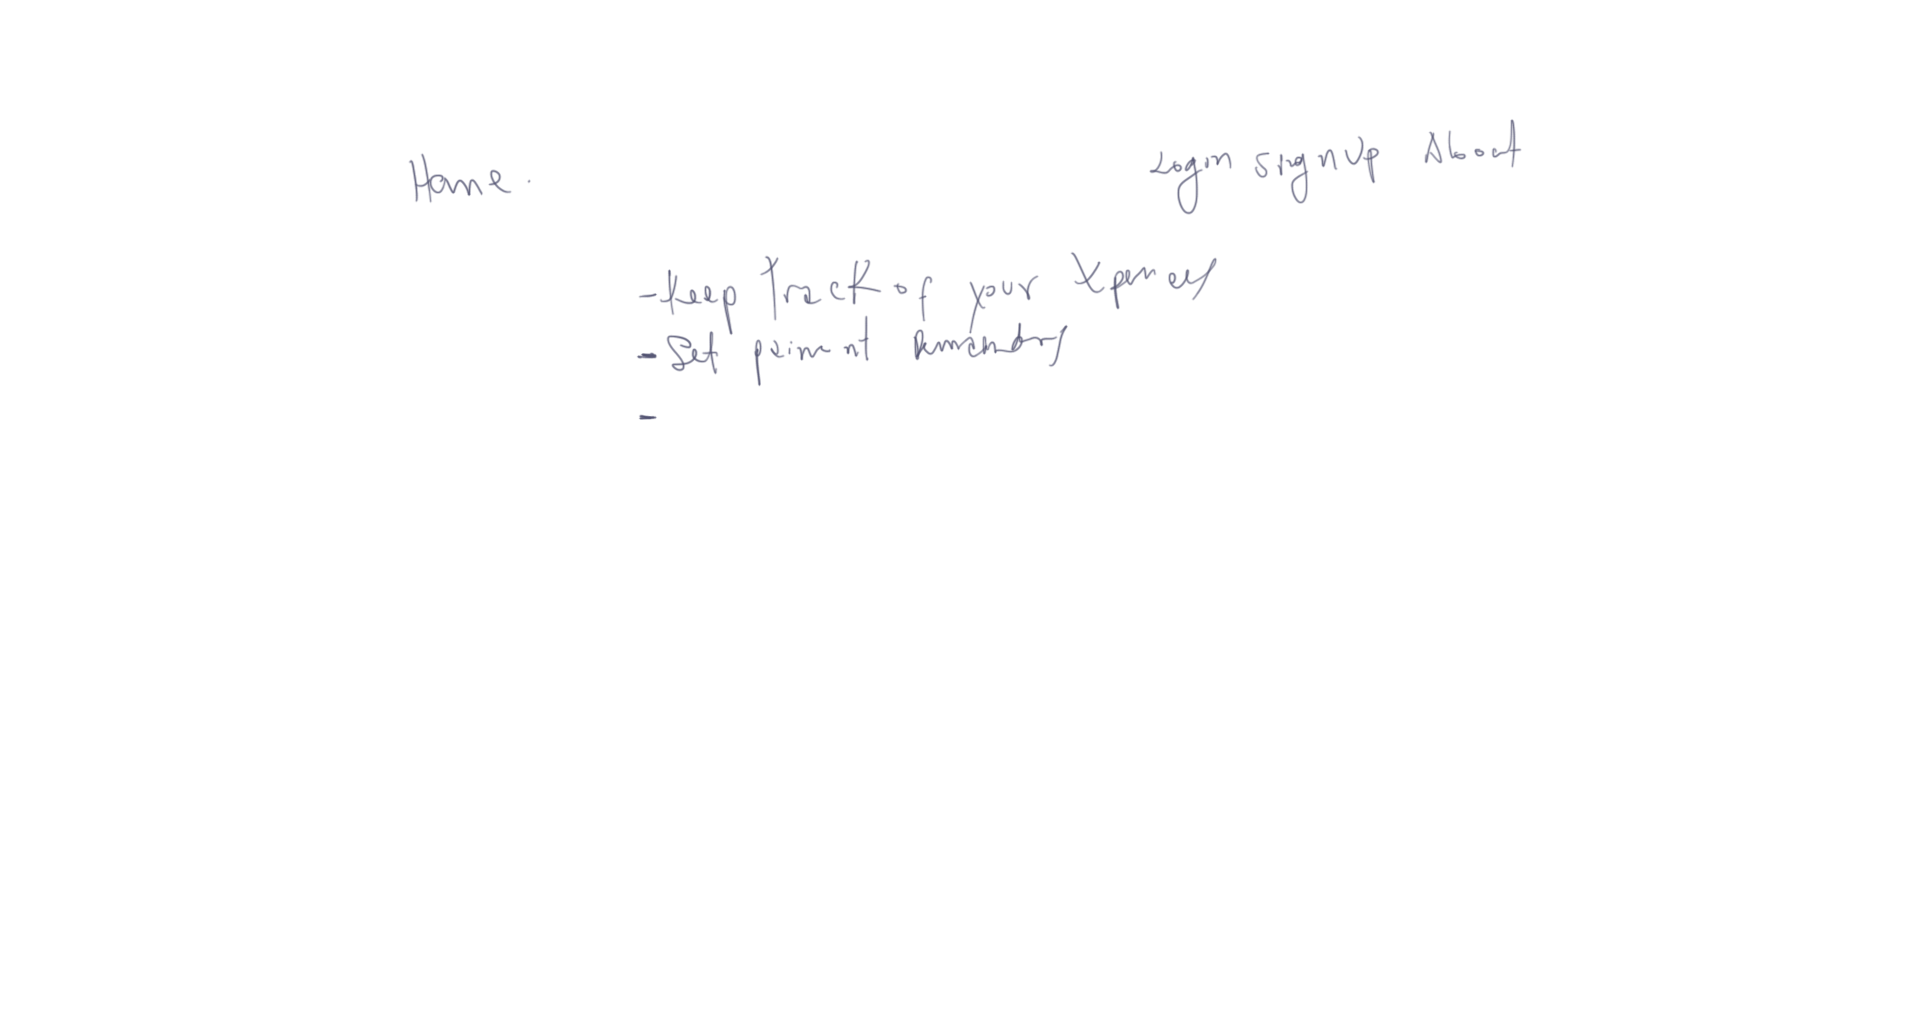 Home.
Login SignUp About
- Keep Track of your Xpences
- Set paiment Remindors
-